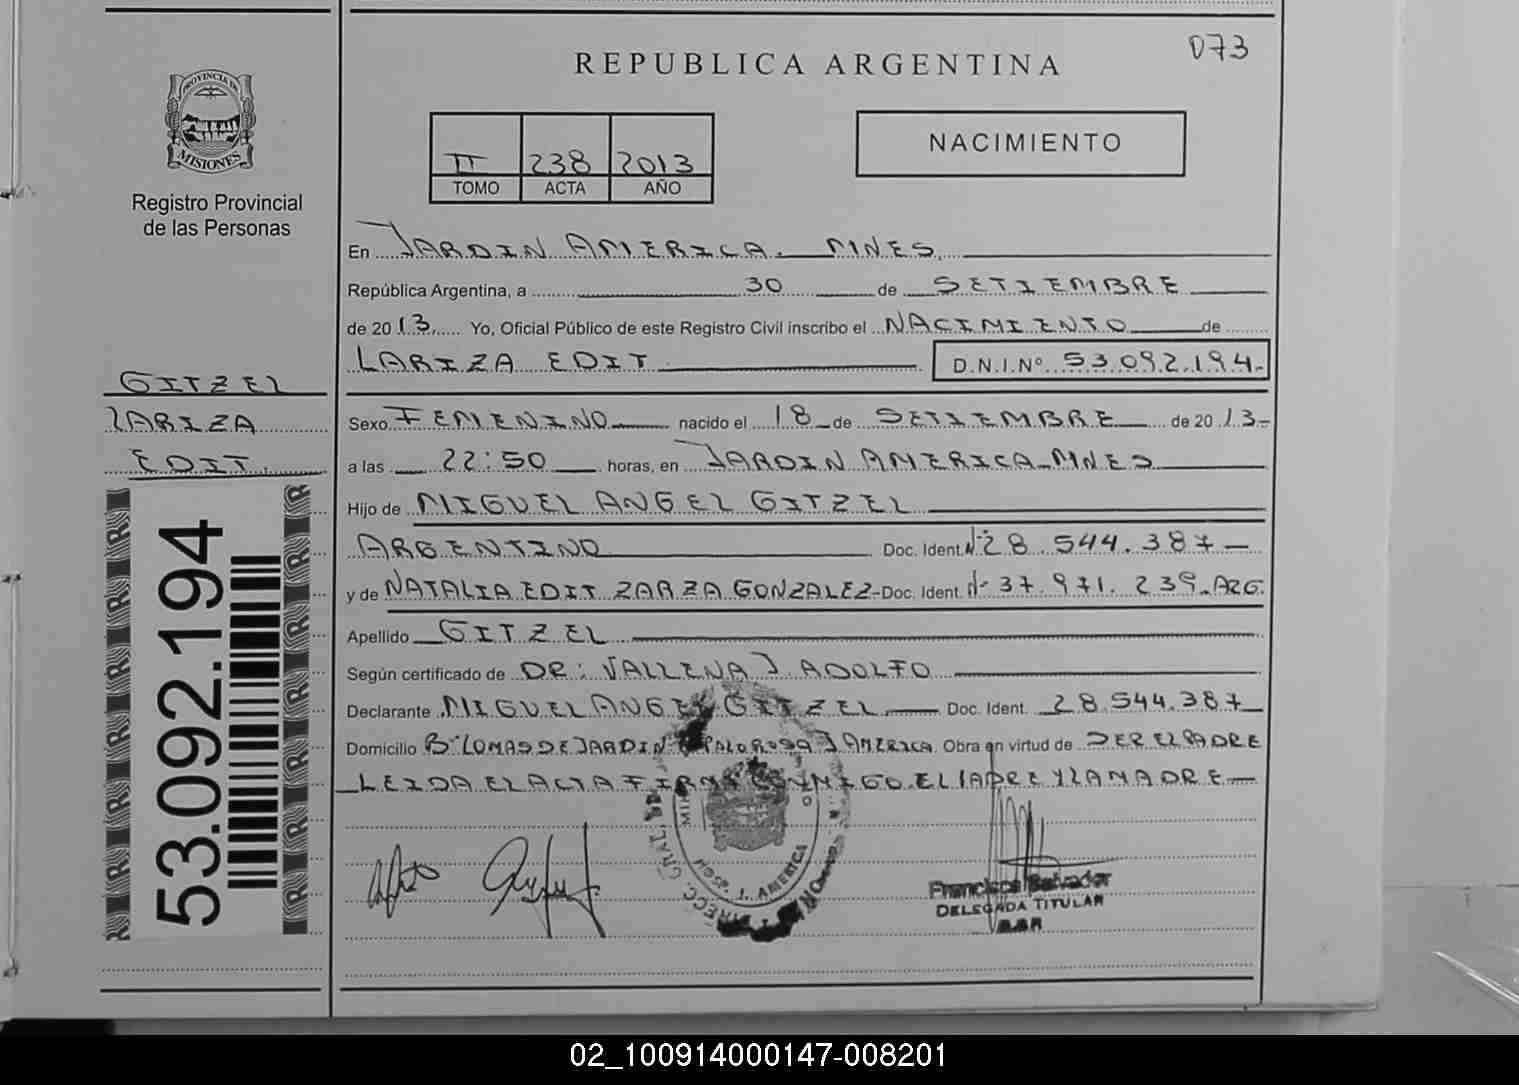 073
REPUBLICA ARGENTINA
PROVINCIA DE
MISIONES
Registro Provincial
de las Personas
II 238 2013
TOMO ACTA AÑO
NACIMIENTO
En JARDIN AMERICA. MNES.
República Argentina, a 30 de SETIEMBRE
de 2013. Yo, Oficial Público de este Registro Civil inscribo el NACIMIENTO de
LARIZA EDIT D.N.I.Nº 53.092.194-
GITZEL
LARIZA
EDIT.
Sexo FEMENINO nacido el 18 de SETIEMBRE de 2013-
a las 22:50 horas, en JARDIN AMERICA-MNES
Hijo de MIGUEL ANGEL GITZEL
ARGENTINO Doc. Ident. Nº 28.544.387-
y de NATALIA EDIT ZARZA GONZALEZ-Doc. Ident. Nº 37.971.239-ARG.
Apellido GITZEL
Según certificado de DR: VALLENA J ADOLFO
Declarante MIGUEL ANGEL GITZEL Doc. Ident. 28.544.387
Domicilio Bº LOMAS DE JARDIN PALO ROSA J AMERICA Obra en virtud de SER EL PADRE
LEIDA EL ACTA FIRMA CONMIGO EL PADRE Y LA MADRE-
53.092.194
HOSP. J. AMERICA
DIRECC. GRAL. DE
Francisca Salvador
DELEGADA TITULAR
02_100914000147-008201